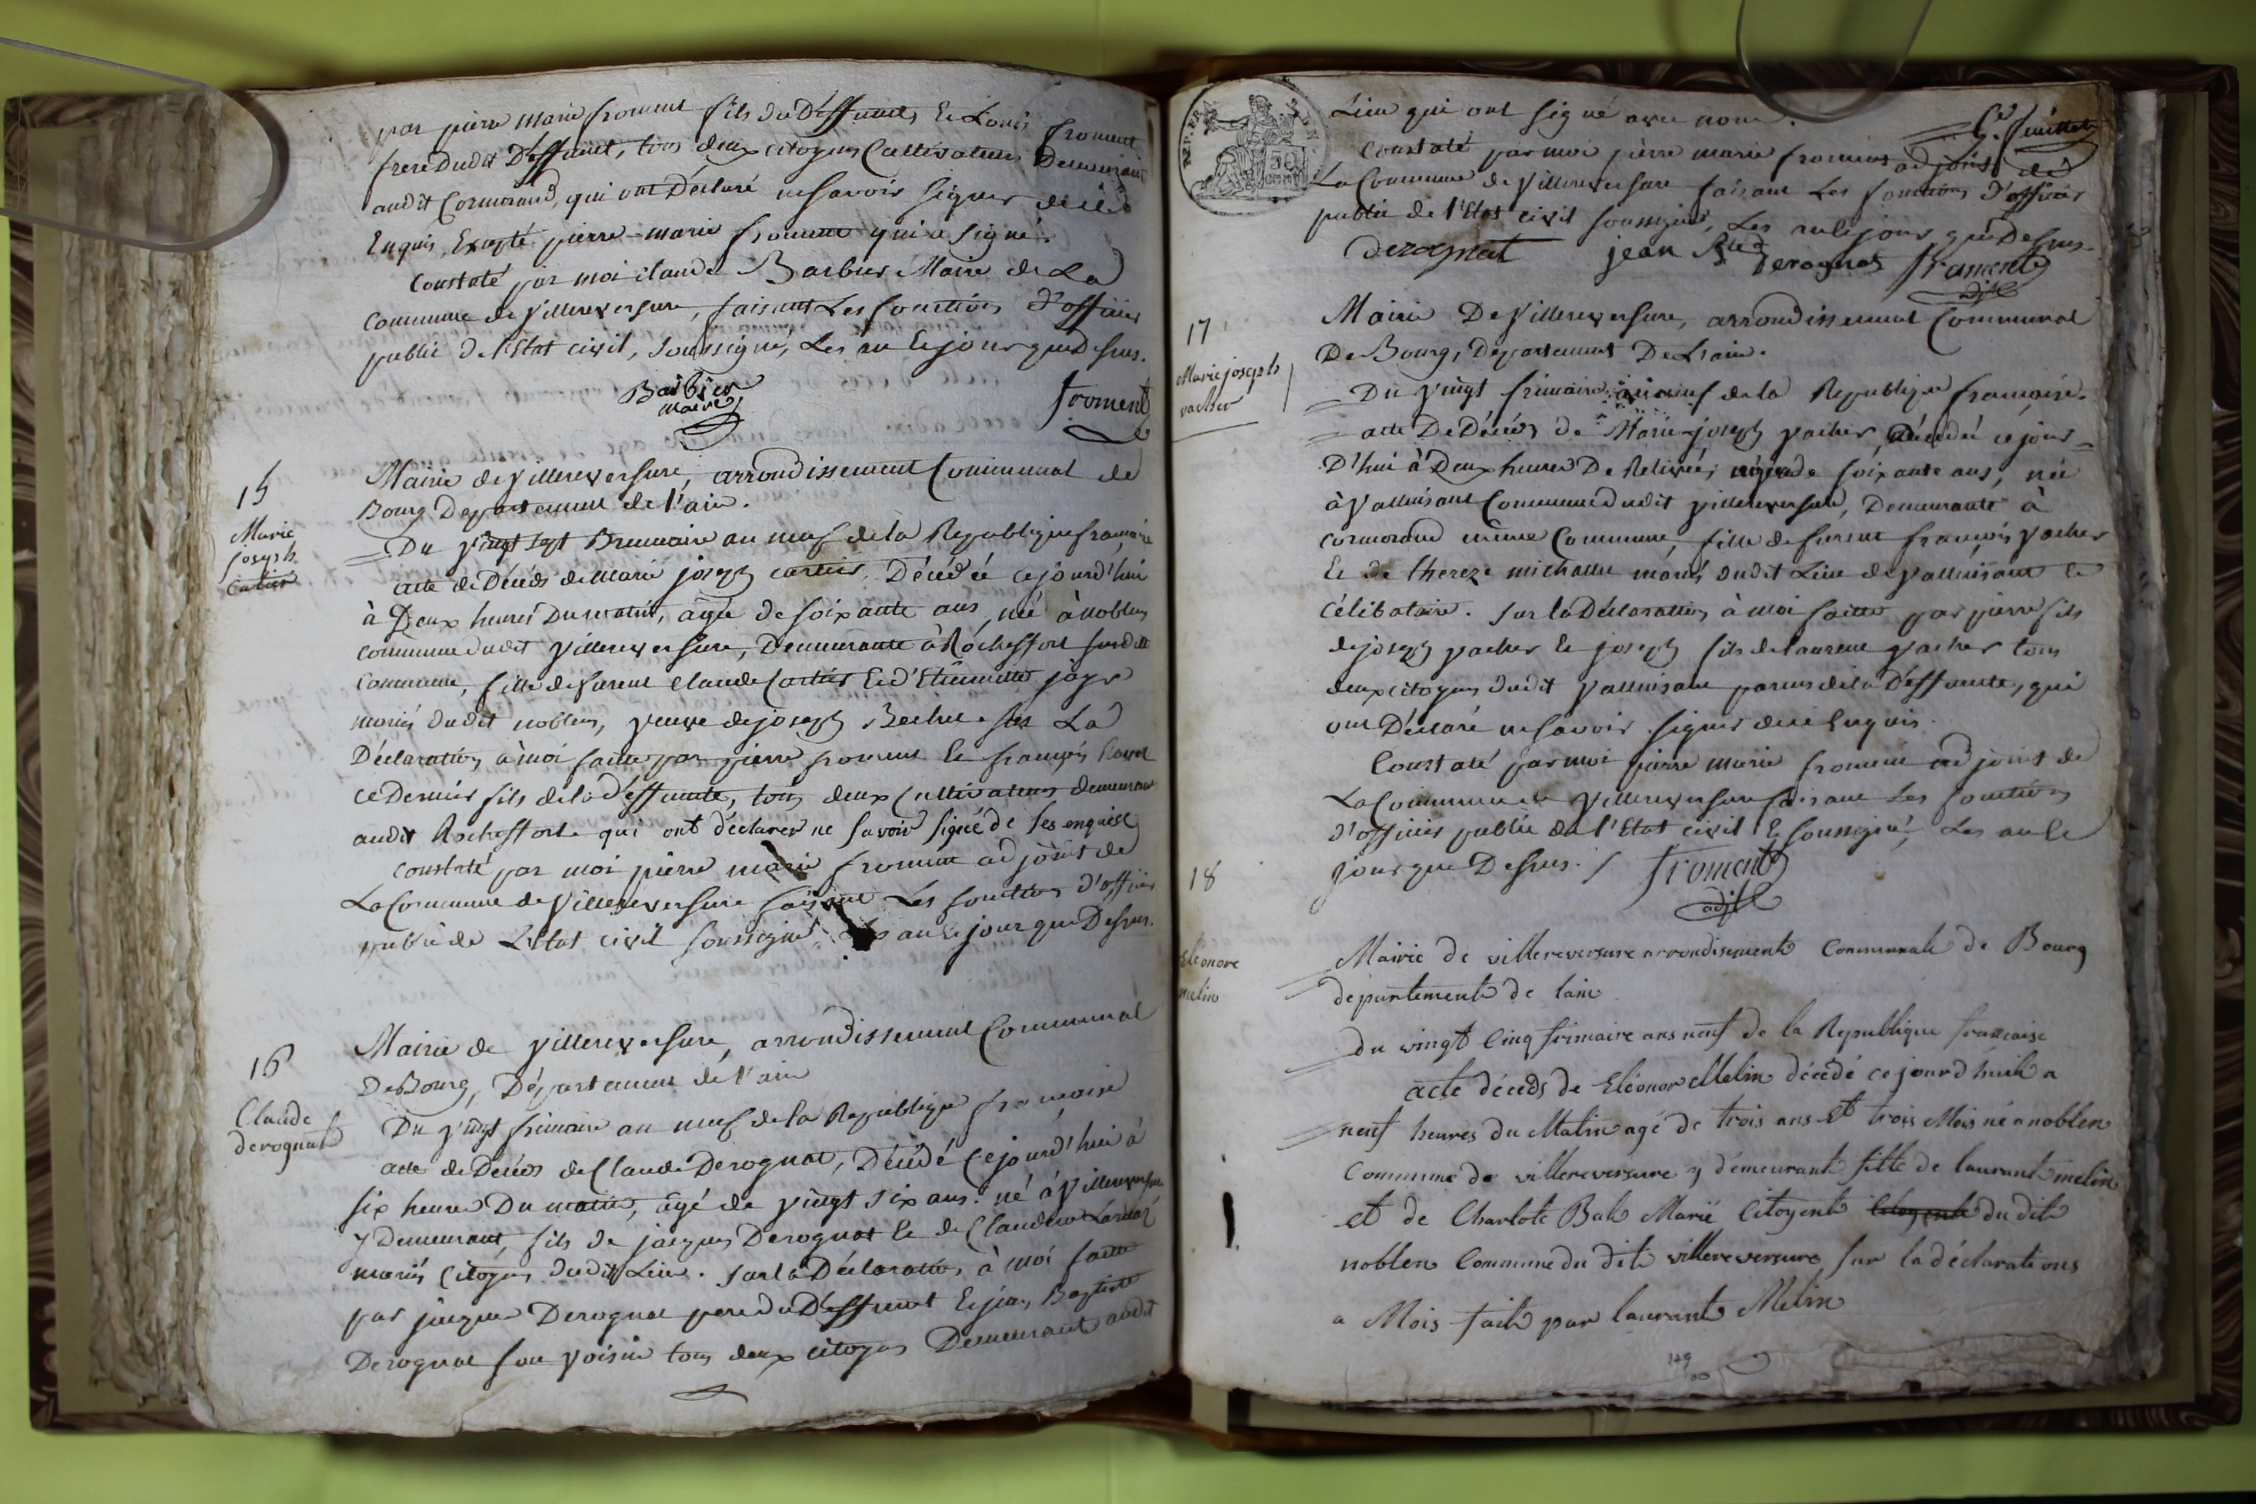 par pierre marie froment fils du Deffunct, Et Louis froment
frere dudit Deffunct, tous deux citoyens Cultivateurs Demeurant
audit Cormorand, qui ont Déclaré ne savoir signer de ce
Enquis, Excepté pierre-marie froment qui a signé.
Constaté par moi claude Barbier Maire de La
Commune de Villereversure, faisant Les fonctions d'officier
public de l'Etat civil, soussigné, Les an Le jour que Dessus.
Barbier
maire
froment
15
Marie
joseph
Cartier
Mairie de Villereversure, arrondissement Communal de
Bourg Departement de l'ain.
Du Vingt sept Brumaire an neuf de la Republique française
acte de Décés de Marie joseph cartier, Décédée ce jourd'hui
à Deux heures Du matin, agée de soixante ans, née à noblens
commune dudit Villereversure, Demeurante à Rocheffort susditte
Commune, fille de furent Claude Cartier Et d'Etiennette
mariés dudit noblens, Veuve de joseph sur La
Déclaration à moi faitte par pierre froment Et françois
ce Dernier fils de la deffuncte, tous deux Cultivateurs demeurant
audit Rocheffort qui ont déclarer ne savoir signé de ses enquise
Constaté par moi pierre marie froment adjoint de
La Commune de Villereversure faisant Les fonctions d'officier
public de L'Etat civil soussigné, Les an Le jour que Dessus.
16
Claude
derognat
Mairie de Villereversure, arrondissement Communal
De Bourg, Département de l'ain
Du Vingt frimaire an neuf de la Republique françoise
acte de Décés de Claude Derognat, Décédé Ce jourd'hui à
six heures Du matin, agé de Vingt six ans. né à Villereversure
y Demeurant, fils de jacques Derognat Et de Claudine
mariés Citoyens dudit Lieu. sur la Déclaration à moi faitte
par jacques Derognat pere du Deffunct Et jean Baptiste
Derognat son Voisin tous deux citoyens Demeurant audit
Lieu qui ont signé avec nous.
Constaté par moi pierre marie froment adjoint de
La Commune de Villereversure faisant Les fonctions d'officier
public de l'Etat civil soussigné, Les an Le jour que Dessus.
derognat jean Bte derognat froment
adjt
17
Marie joseph
vacher
Mairie De Villereversure, arrondissement Communal
De Bourg, Département De L'ain.
Du Vingt frimaire an neuf de la Republique française.
acte De Décés de Marie-joseph Vacher, Décédée ce jour-
D'hui à Deux heures De Relevée, agée de soixante ans, née
à Valluisant Commune dudit Villereversure, Demeurante à
cormorand même Commune, fille de furent françois Vacher
Et de thereze michallet mariés dudit Lieu de Valluisant Et
Célibataire. sur la Déclaration à moi faitte par pierre fils
de joseph Vacher Et joseph fils de laurent Vacher tous
deux citoyens dudit Valluisant parens de la Deffuncte, qui
ont Déclaré ne savoir signer de ce Enquis.
Constaté par moi pierre marie froment adjoint de
La Commune de Villereversure faisant Les fonctions
d'officier public de l'Etat civil Et soussigné, Les an Le
jour que Dessus. froment
adjt
18
Eléonore
melin
Mairie de villereversure arrondisement Communale de Bourg
département de lain
du vingt Cinq frimaire ans neuf de la Republique française
acte décéds de Eléonor Melin décédé ce jourd huit a
neuf heures du Matin agé de trois ans et trois Mois né a noblen
Commune de villereversure y démeurant fille de laurant melin
et de Charlote Bah Marié Citoyent Citoyent du dit
noblen Commune du dit villereversure sur la déclarations
a Mois fait par laurant Melin
129